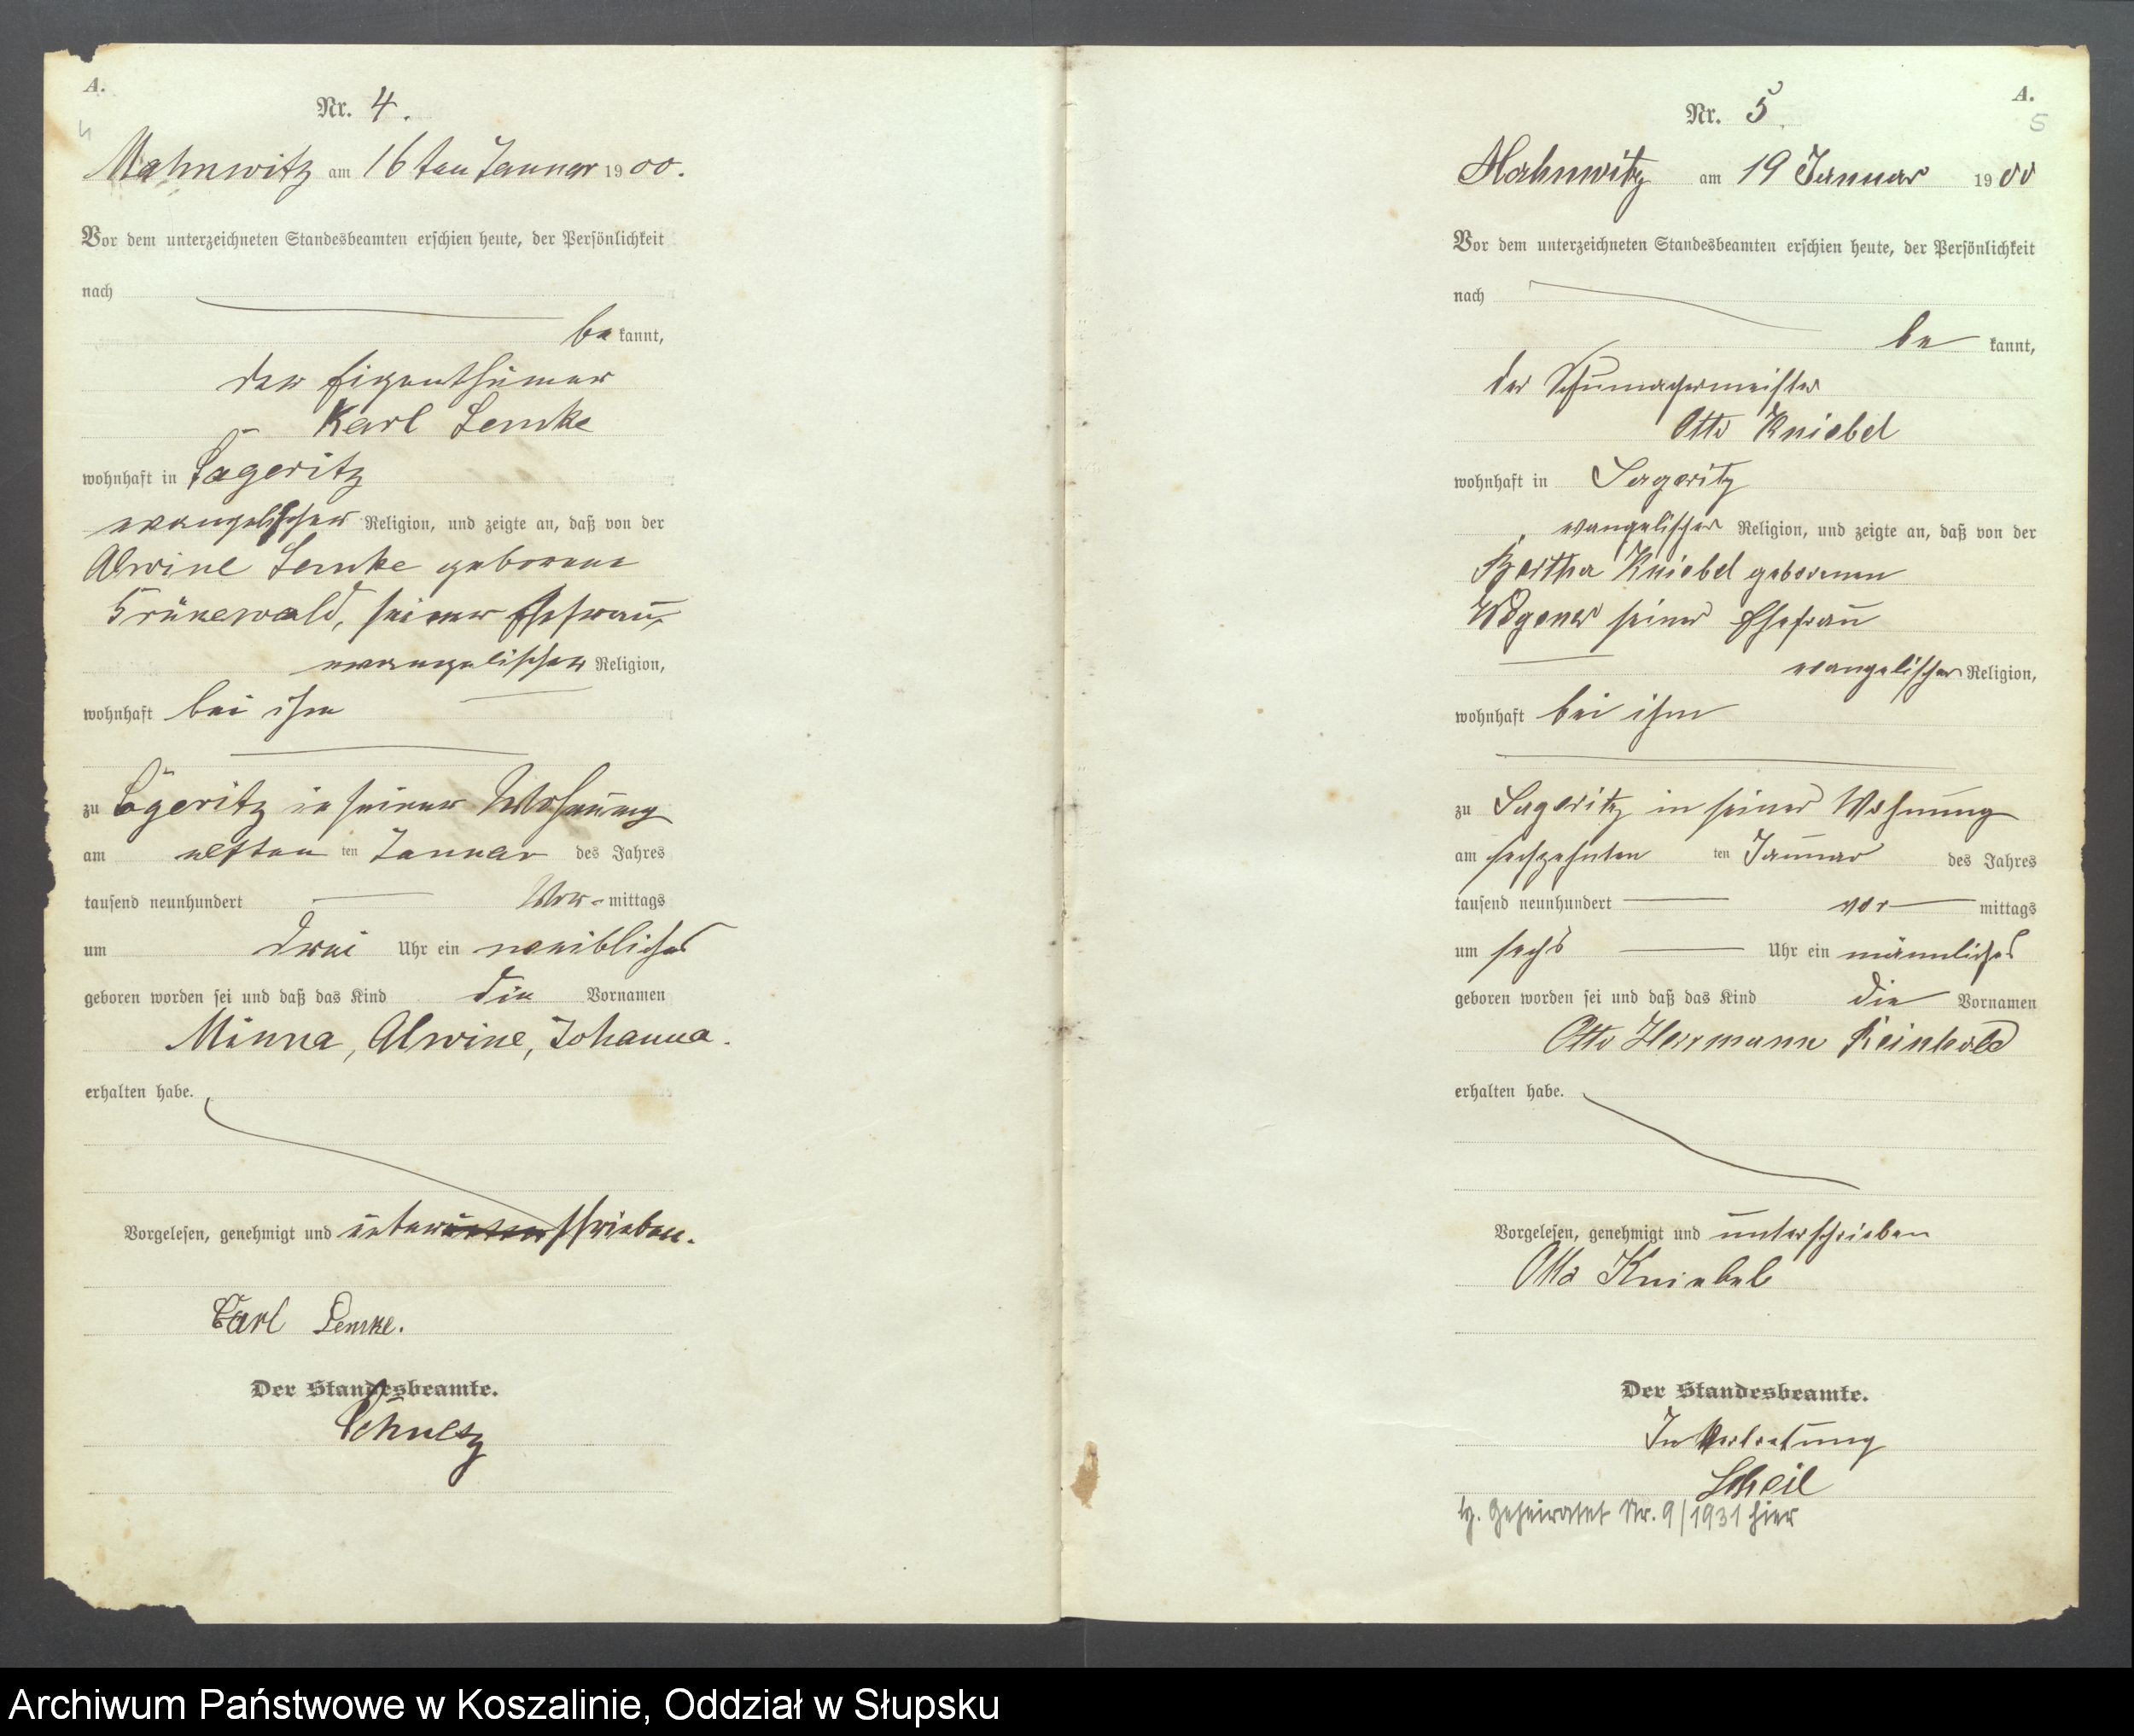 A.
4
Nr. 4.
Mahnwitz am 16ten Januar 1900.
Vor dem unterzeichneten Standesbeamten erschien heute, der Persönlichkeit
nach
be kannt,
der Eigenthümer
Karl Lemke
wohnhaft in Sageritz
evangelischer Religion, und zeigte an, daß von der
Alwine Lemke geborene
Grünewald, seiner Ehefrau,
evangelischer Religion,
wohnhaft bei ihm
zu Sageritz in seiner Wohnung
am elften ten Januar des Jahres
tausend neunhundert Vor- mittags
um drei Uhr ein weibliches
geboren worden sei und daß das Kind die Vornamen
Minna, Alwine, Johanna.
erhalten habe.
Vorgelesen, genehmigt und unterschrieben.
Carl Lemke.
Der Standesbeamte.
Schultz
A.
5
Nr. 5.
Mahnwitz am 19 Januar 1900
Vor dem unterzeichneten Standesbeamten erschien heute, der Persönlichkeit
nach
be kannt,
der Schumachermeister
Otto Kniebel
wohnhaft in Sageritz
evangelischer Religion, und zeigte an, daß von der
Bertha Kniebel geborenen
Wegener seiner Ehefrau
evangelischer Religion,
wohnhaft bei ihm
zu Sageritz in seiner Wohnung
am sechzehnten ten Januar des Jahres
tausend neunhundert vor mittags
um sechs Uhr ein männliches
geboren worden sei und daß das Kind die Vornamen
Otto Herrmann Reinhold
erhalten habe.
Vorgelesen, genehmigt und unterschrieben
Otto Kniebel
Der Standesbeamte.
In Vertretung
Scheil
Geheiratet Nr. 9/1931 hier
Archiwum Państwowe w Koszalinie, Oddział w Słupsku